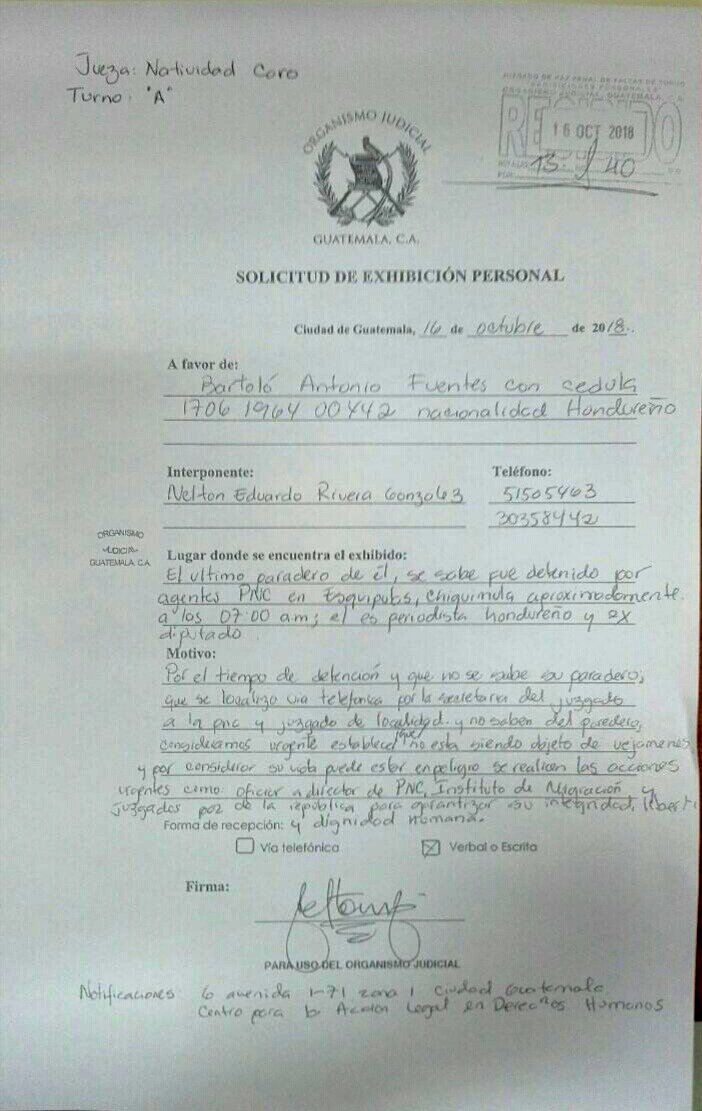 Jueza: Natividad Coro
Turno: "A"
JUZGADO DE PAZ PENAL DE FALTAS DE TURNO
EXHIBICIONES PERSONALES
ORGANISMO JUDICIAL, GUATEMALA, C.A.
RECIBIDO
16 OCT 2018
13:40
ORGANISMO JUDICIAL
GUATEMALA, C.A.
SOLICITUD DE EXHIBICIÓN PERSONAL
Ciudad de Guatemala, 16 de octubre de 2018.
A favor de:
Bartoló Antonio Fuentes con cedula
1706 1964 00442 nacionalidad Hondureño
Interponente: Teléfono:
Nelton Eduardo Rivera Gonzalez 51505463
30358442
ORGANISMO
JUDICIAL
GUATEMALA, C.A.
Lugar donde se encuentra el exhibido:
El ultimo paradero de él, se sabe fue detenido por
agentes PNC en Esquipulas, chiquimula aproximadamente
a los 07:00 am; el es periodista hondureño y ex
diputado.
Motivo:
Por el tiempo de detención y que no se sabe su paradero;
que se localizo via telefonica por la secretaria del juzgado
a la pnc y juzgado de localidad y no saben del paradero,
consideramos urgente establecer que no esta siendo objeto de vejamenes
y por considerar su vida puede estar en peligro se realicen las acciones
urgentes como: oficiar a director de PNC, Instituto de Migración y
juzgados paz de la república para garantizar su integridad, liberta
Forma de recepción: y dignidad humana.
Vía telefónica Verbal o Escrita
Firma:
PARA USO DEL ORGANISMO JUDICIAL
Notificaciones 6 avenida 1-71 zona 1 Ciudad Guatemala
Centro para la Acción Legal en Derechos Humanos